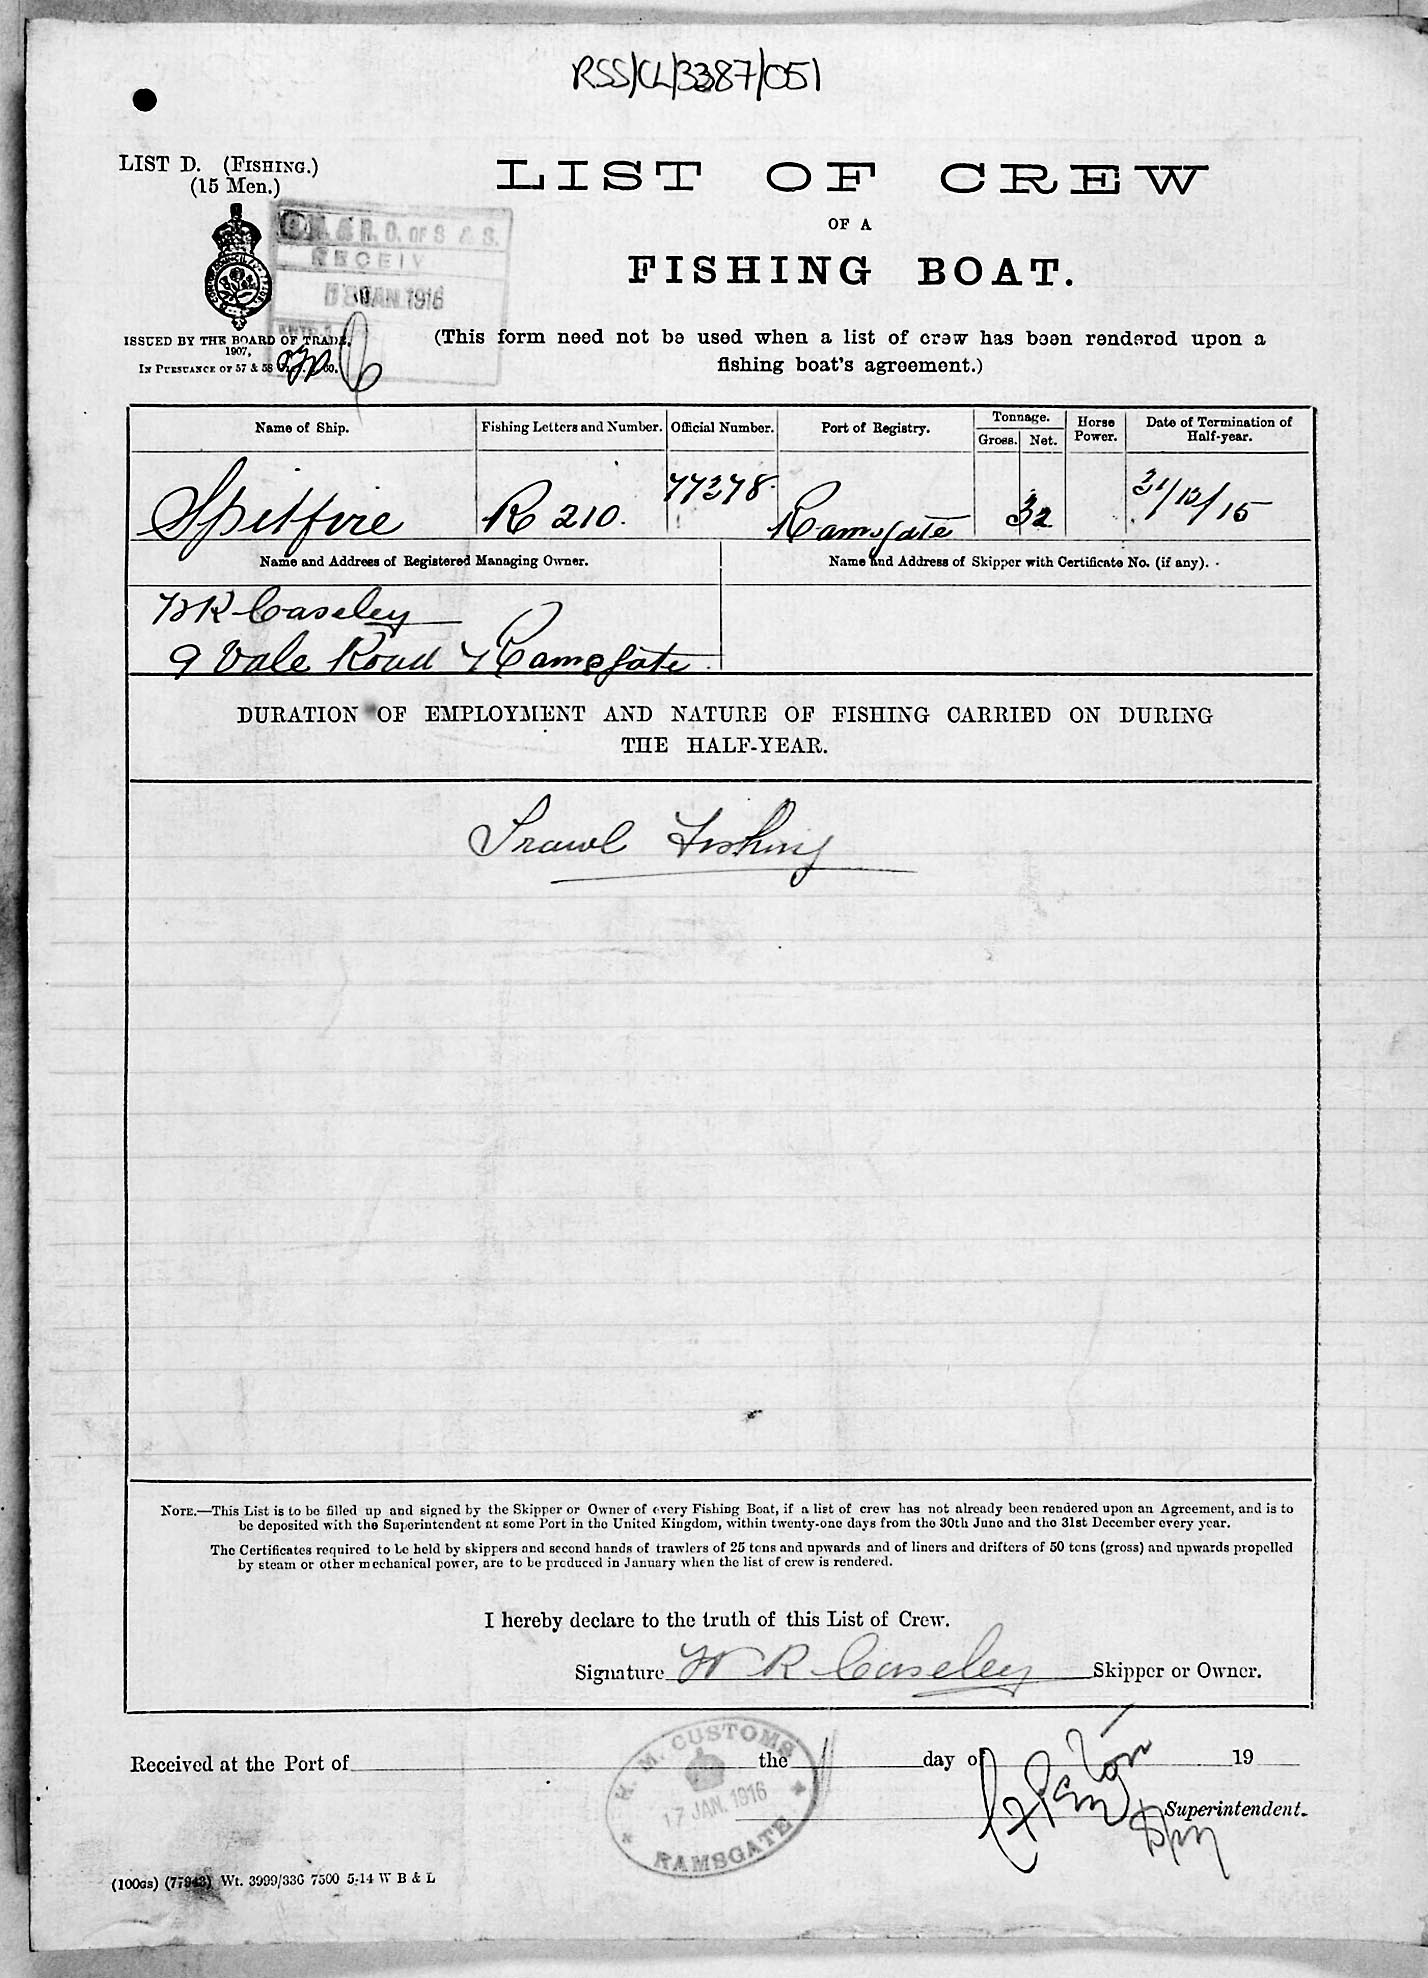 RSS/CL/3387/051
LIST D. (FISHING.)
(15 Men.)
LIST OF CREW
OF A
FISHING BOAT.
R. O. OF S & S.
RECEIV
JAN. 1916
ISSUED BY THE BOARD OF TRADE,
1907,
IN PURSUANCE OF 57 & 58 60.
(This form need not be used when a list of crew has been rendered upon a
fishing boat's agreement.)
Name of Ship. Fishing Letters and Number. Official Number. Port of Registry. Tonnage. Gross. Net. Horse Power. Date of Termination of Half-year.
Spitfire R 210. 77278. Ramsgate 32 31/12/15
Name and Address of Registered Managing Owner. Name and Address of Skipper with Certificate No. (if any).
W R Caseley
9 Vale Road Ramsgate.
DURATION OF EMPLOYMENT AND NATURE OF FISHING CARRIED ON DURING
THE HALF-YEAR.
Trawl Fishing
NOTE.—This List is to be filled up and signed by the Skipper or Owner of every Fishing Boat, if a list of crew has not already been rendered upon an Agreement, and is to
be deposited with the Superintendent at some Port in the United Kingdom, within twenty-one days from the 30th June and the 31st December every year.
The Certificates required to be held by skippers and second hands of trawlers of 25 tons and upwards and of liners and drifters of 50 tons (gross) and upwards propelled
by steam or other mechanical power, are to be produced in January when the list of crew is rendered.
I hereby declare to the truth of this List of Crew.
Signature W R Caseley Skipper or Owner.
Received at the Port of the day of 19
H. M. CUSTOMS
17 JAN. 1916
RAMSGATE
Superintendent.
(100GS) Wt. 3999/336 7500 5-14 W B & L